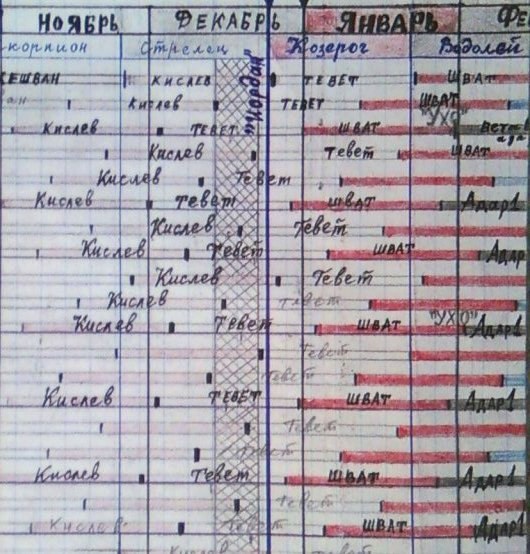 НОЯБРЬ ДЕКАБРЬ ЯНВАРЬ ФЕ
корпион Стрелец Козерог Водолей
"Иордан"
ЕШВАН КИСЛЕВ ТЕВЕТ ШВАТ
ан Кислев ТЕВЕТ ШВАТ
"УХО"
Кислев ТЕВЕТ ШВАТ
Кислев Тевет ШВАТ
Кислев Тевет
Кислев Тевет ШВАТ Адар1
Кислев Тевет
Кислев Тевет ШВАТ Адар
Кислев Тевет
Кислев Тевет
"УХО"
Кислев Тевет ШВАТ Адар1
Тевет
Тевет
Кислев ТЕВЕТ ШВАТ Адар1
Тевет
Тевет
Кислев Тевет ШВАТ Адар1
Тевет
Кислев Тевет ШВАТ Адар1
Кислев Тевет